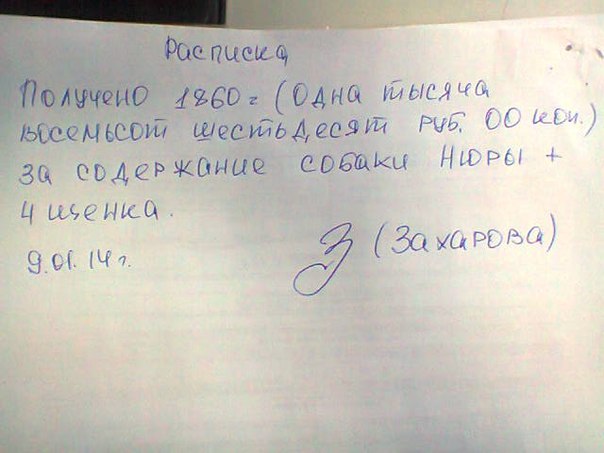 Расписка
Получено 1860= (Одна тысяча
восемьсот шестьдесят руб. 00 коп.)
за содержание собаки Нюры +
4 щенка.
(Захарова)
9.01.14г.